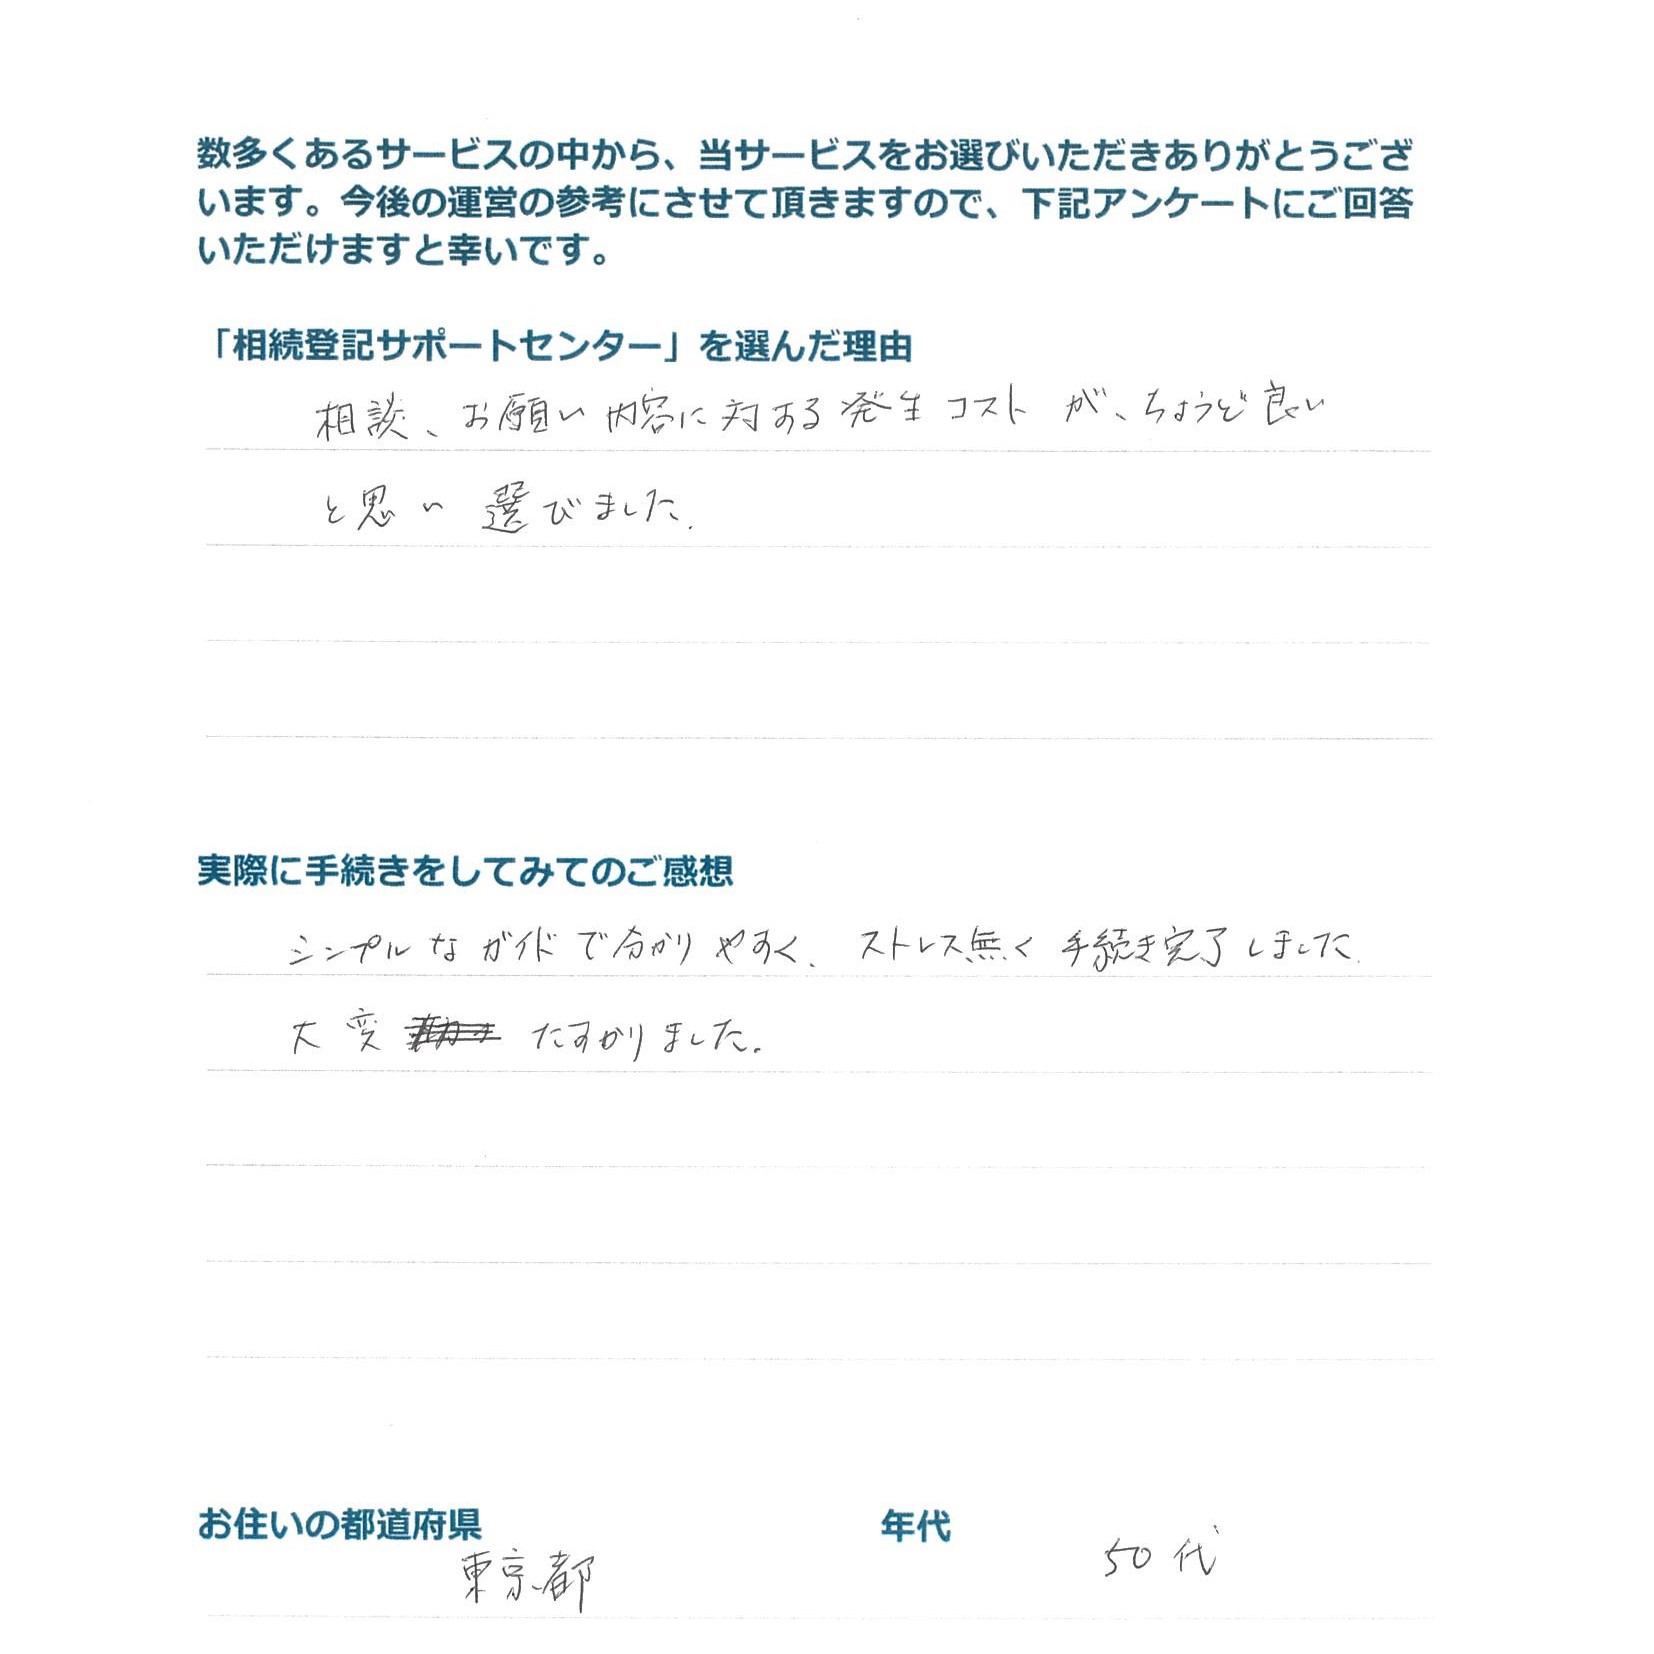 数多くあるサービスの中から、当サービスをお選びいただきありがとうござ
います。今後の運営の参考にさせて頂きますので、下記アンケートにご回答
いただけますと幸いです。
「相続登記サポートセンター」を選んだ理由
相談、お願い内容に対する発生コストが、ちょうど良い
と思い選びました.
実際に手続きをしてみてのご感想
シンプルなガイドで分かりやすく、ストレス無く手続き完了しました.
大変 たすかりました.
お住いの都道府県
東京都
年代
50代